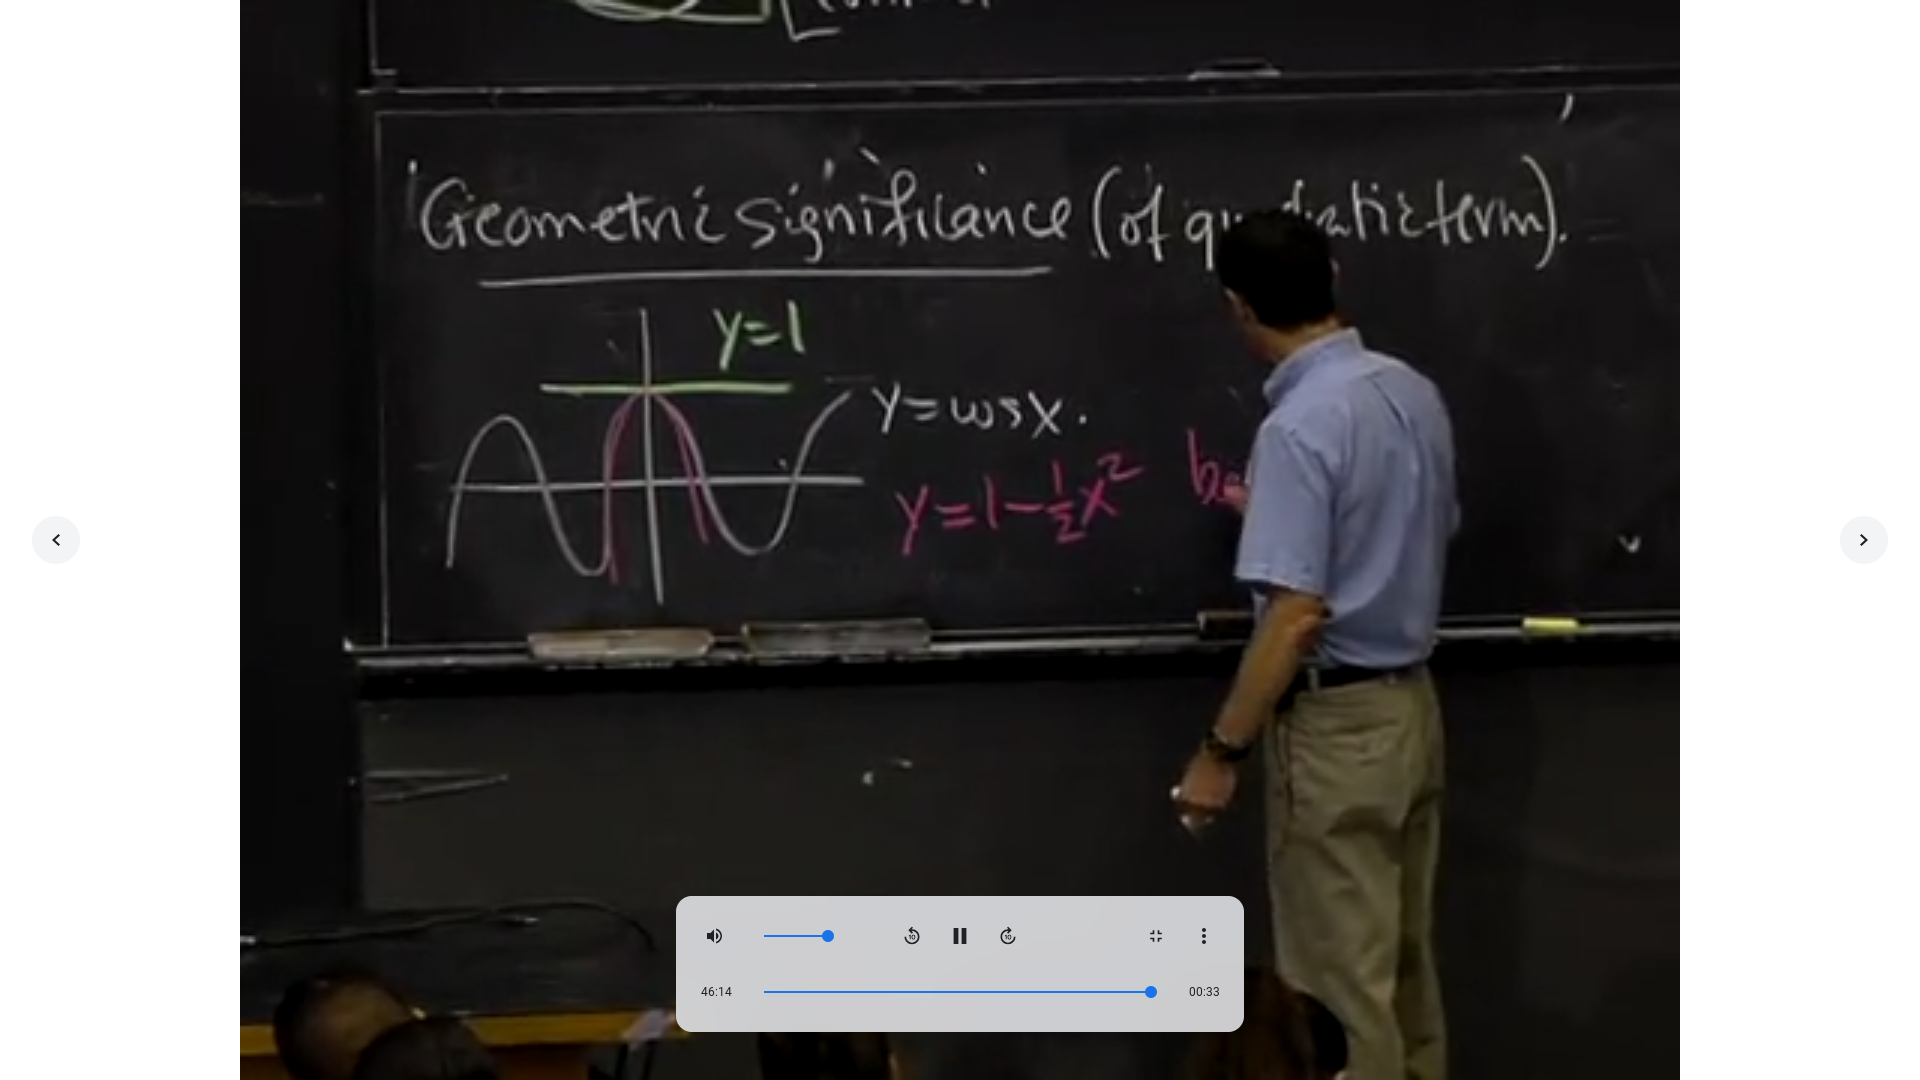 Geometric significance (of quadratic term).
y=1
y=cosx.
y=1-½x²
46:14
00:33